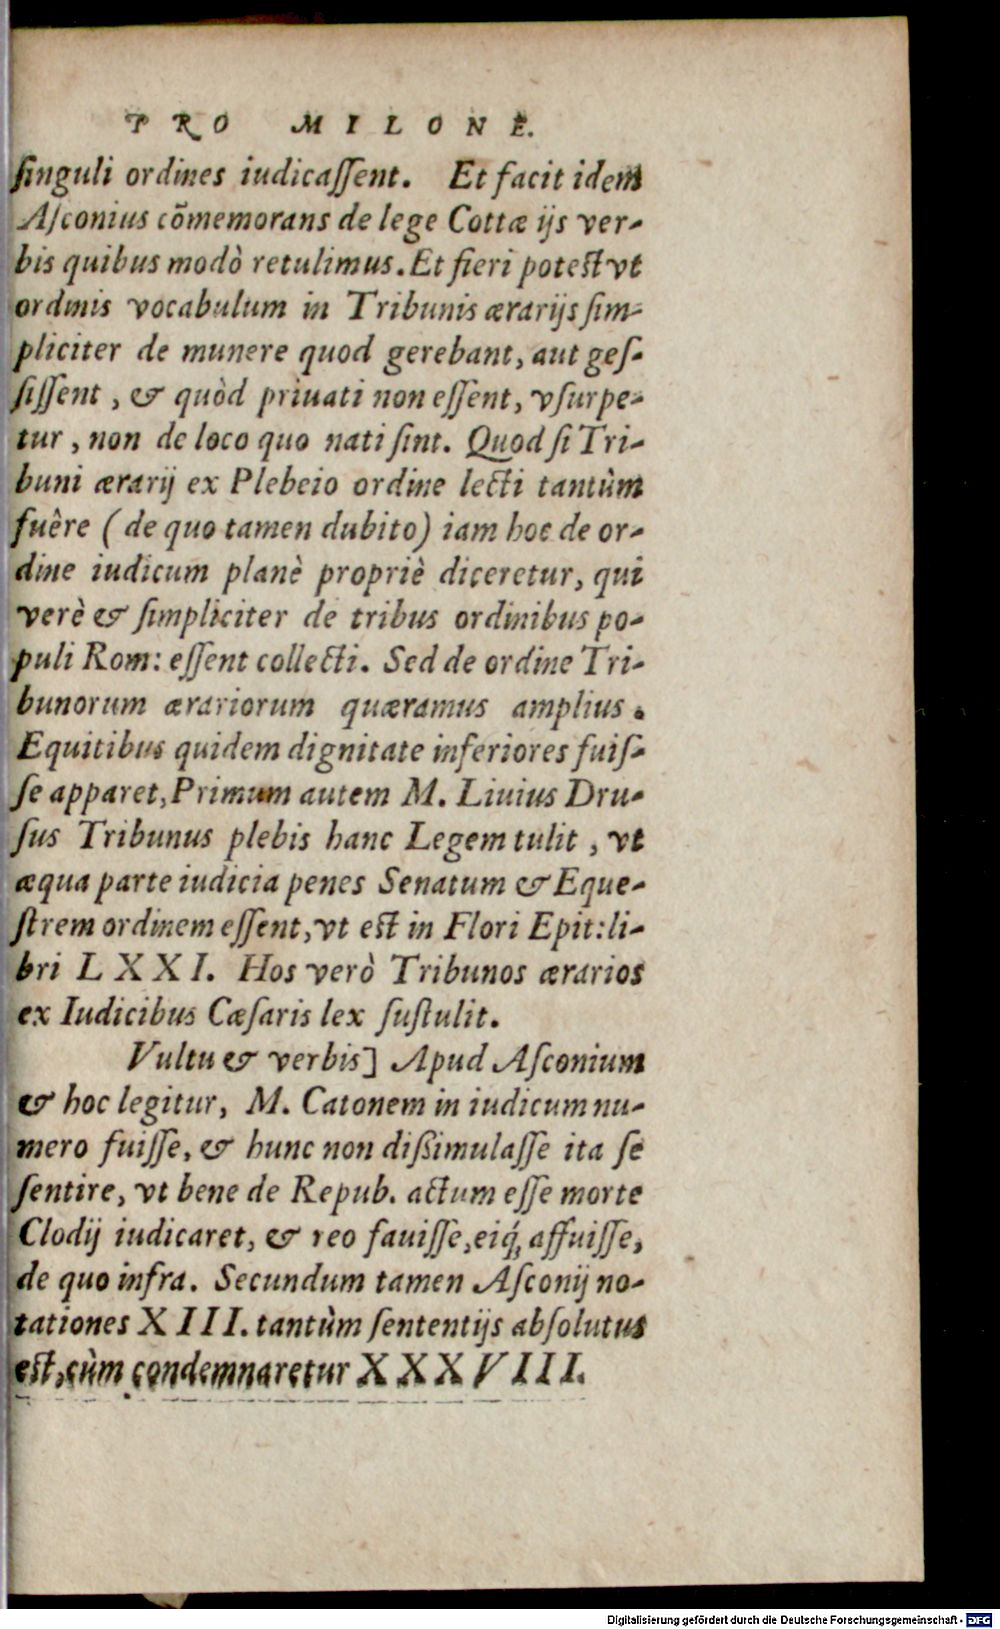 PRO MILONE.
ſinguli ordines iudicaſſent. Et facit idem
Aſconius cõmemorans de lege Cottæ ijs ver-
bis quibus modò retulimus. Et fieri poteſt vt
ordinis vocabulum in Tribunis ærarijs ſim-
pliciter de munere quod gerebant, aut geſ-
ſiſſent, & quòd priuati non eſſent, vſurpe-
tur, non de loco quo nati ſint. Quod ſi Tri-
buni ærarij ex Plebeio ordine lecti tantùm
fuêre (de quo tamen dubito) iam hoc de or-
dine iudicum planè propriè diceretur, qui
verè & ſimpliciter de tribus ordinibus po-
puli Rom: eſſent collecti. Sed de ordine Tri-
bunorum ærariorum quæramus amplius.
Equitibus quidem dignitate inferiores fuiſ-
ſe apparet, Primum autem M. Liuius Dru-
ſus Tribunus plebis hanc Legem tulit, vt
æqua parte iudicia penes Senatum & Eque-
ſtrem ordinem eſſent, vt eſt in Flori Epit: li-
bri LXXI. Hos verò Tribunos ærarios
ex Iudicibus Cæſaris lex ſuſtulit.
Vultu & verbis] Apud Aſconium
& hoc legitur, M. Catonem in iudicum nu-
mero fuiſſe, & hunc non dißimulaſſe ita ſe
ſentire, vt bene de Repub. actum eſſe morte
Clodij iudicaret, & reo fauiſſe, eiq́; affuiſſe,
de quo infra. Secundum tamen Aſconij no-
tationes XIII. tantùm ſententijs abſolutus
eſt, cùm condemnaretur XXXVIII.
Digitalisierung gefördert durch die Deutsche Forschungsgemeinschaft - DFG